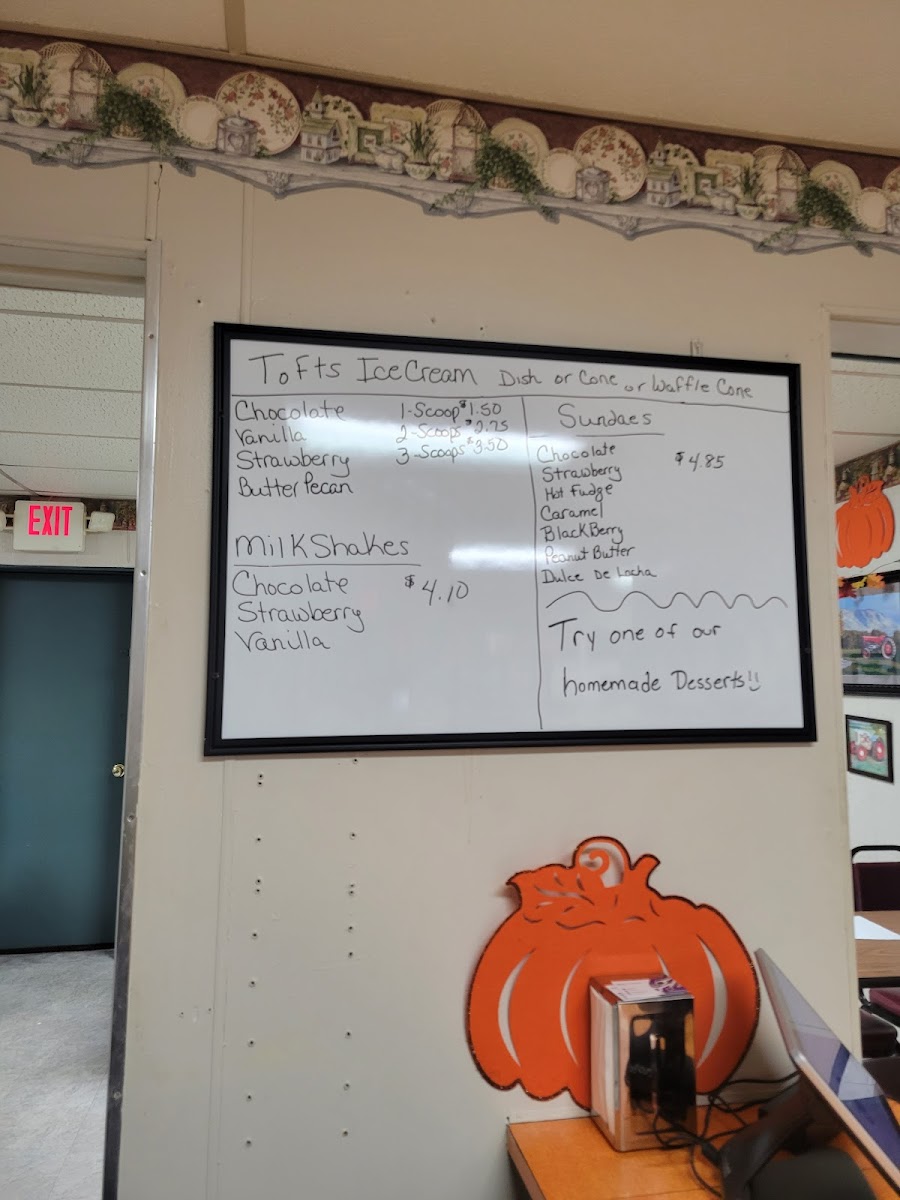 Tofts Ice Cream Dish or Cone or Waffle Cone
Chocolate 1-Scoop $1.50
Vanilla 2-Scoops $2.75
Strawberry 3-Scoops $3.50
Butter Pecan
MilkShakes
Chocolate $4.10
Strawberry
Vanilla
Sundaes
Chocolate $4.85
Strawberry
Hot Fudge
Caramel
BlackBerry
Peanut Butter
Dulce De Lacha
Try one of our
homemade Desserts!!
EXIT